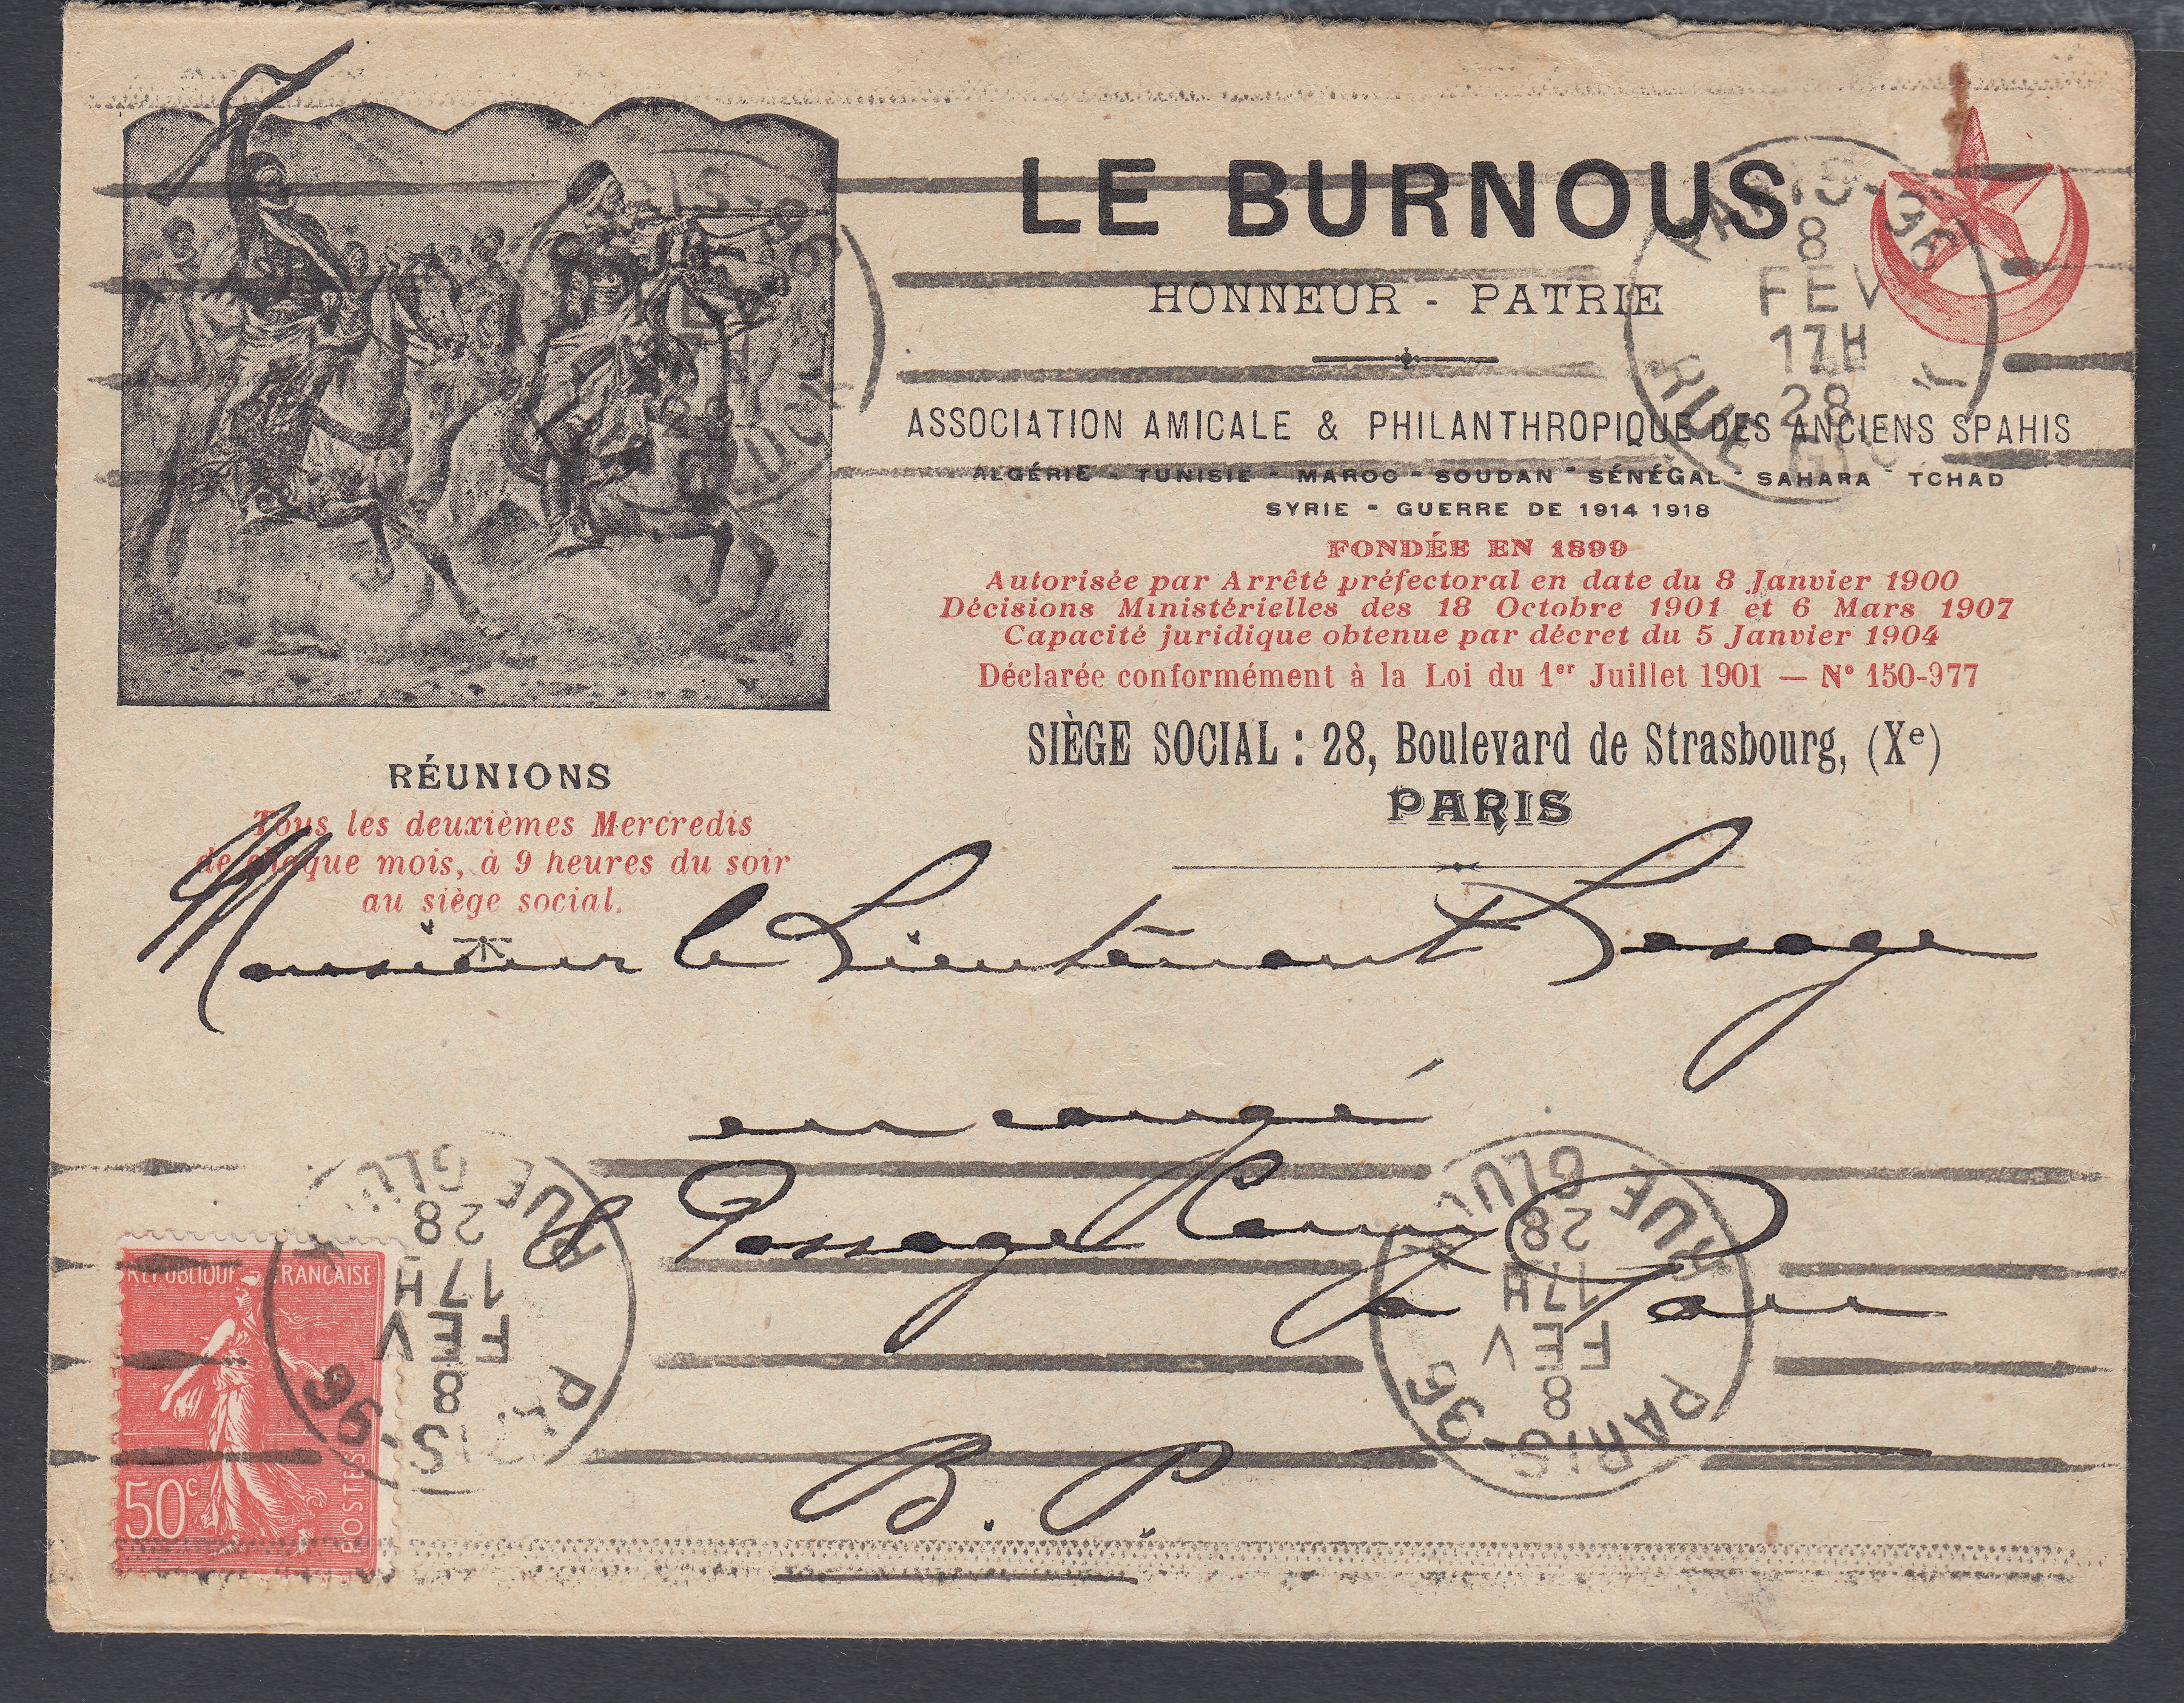 LE BURNOUS
HONNEUR - PATRIE
ASSOCIATION AMICALE & PHILANTHROPIQUE DES ANCIENS SPAHIS
ALGÉRIE - TUNISIE - MAROC - SOUDAN - SÉNÉGAL - SAHARA - TCHAD
SYRIE - GUERRE DE 1914 1918
FONDÉE EN 1899
Autorisée par Arrêté préfectoral en date du 8 Janvier 1900
Décisions Ministérielles des 18 Octobre 1901 et 6 Mars 1907
Capacité juridique obtenue par décret du 5 Janvier 1904
Déclarée conformément à la Loi du 1er Juillet 1901 — N° 150-977
SIÈGE SOCIAL : 28, Boulevard de Strasbourg, (Xe)
PARIS
RÉUNIONS
Tous les deuxièmes Mercredis
de chaque mois, à 9 heures du soir
au siège social.
PARIS-96
8
FEV
17H
28
RUE GLUCK
Monsieur le Lieutenant Lesage
en congé
8 Passage
à Pau
B. P.
RUE GLU
28
17H
FEV
8
PARIS-96
RUE GLU
28
17H
FEV
8
PARIS-96
REPUBLIQUE FRANÇAISE
50c
POSTES